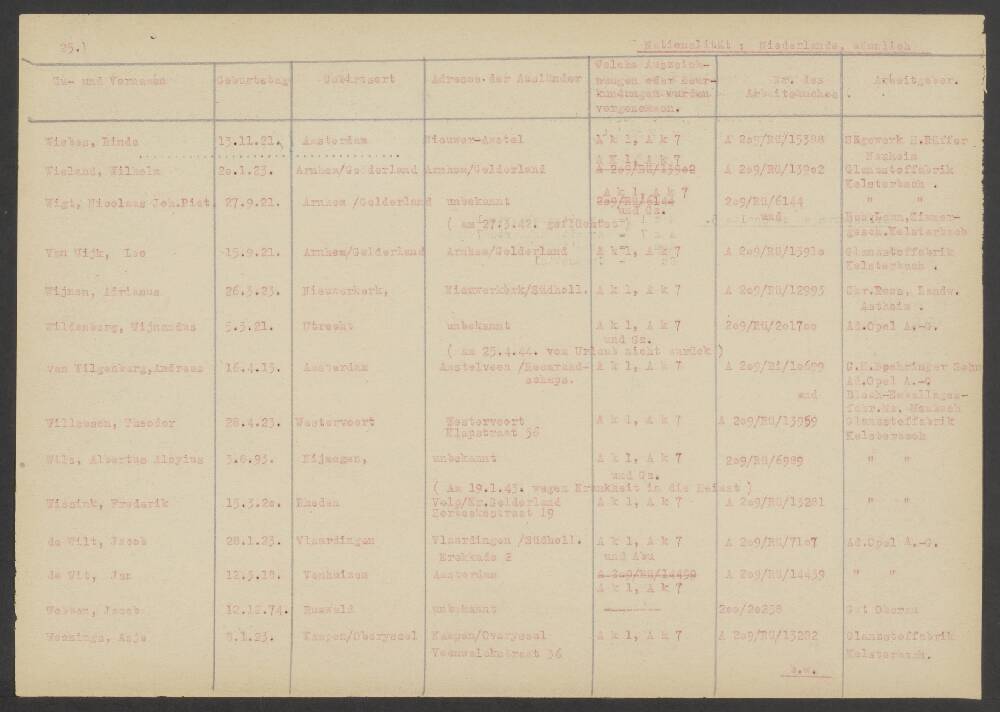 25.) Nationalität : Niederlande, männlich
Zu- und Vornamen Geburtstag Geburtsort Adresse der Ausländer Welche Auszeich- Nr. des Arbeitgeber.
nungen oder Beur- Arbeitsbuches
kundungen wurden
vorgenommen.
Wiebes, Rinde 13.11.21. Amsterdam Nieuwer-Amstel A k 1, A k 7 A 2o9/RU/15388 Sägewerk H.Büffer
A k 1, A k 7 Nauheim
Wieland, Wilhelm 2o.1.23. Arnhem/Gelderland Arnhem/Gelderland A 2o9/RU/139o2 A 2o9/RU/139o2 Glanzstoffabrik
Kelsterbach .
A k 1, A k 7
Wigt, Nicolaas Joh.Piet. 27.9.21. Arnhem /Gelderland unbekannt 2o9/RU/6144 2o9/RU/6144 " "
und Gz. und
( am 27.3.42. geflüchtet )
gesch.Kelsterbach
Van Wijk, Leo 15.9.21. Arnhem/Gelderland Arnhem/Gelderland A k 1, A k 7 A 2o9/RU/1391o Glanzstoffabrik
Kelsterbach .
Wijnen, Adrianus 26.3.23. Nieuwerkerk, Nieuwerkerk/Südholl. A k 1, A k 7 A 2o9/RU/12993 Landw.
Astheim .
Wildenberg, Wijnandus 5.3.21. Utrecht unbekannt A k 1, A k 7 2o9/RU/2o17oo Ad.Opel A.-G.
und Gz.
( am 25.4.44. vom Urlaub nicht zurück )
van Wilgenburg,Andreas 16.4.13. Amsterdam Amstelveen A k 1, A k 7 A 2o9/Ri/1o699 C.H.Boehringer Sohn
schaps. Ad.Opel A.-G
und Blech-Emballagen-
Willemsen, Theodor 28.4.23. Westervoort Westervoort A k 1, A k 7 A 2o9/RU/13959 Glanzstoffabrik
Klapstraat 56 Kelsterbach
Wils, Albertus Aloyius 3.8.93. Nijmegen, unbekannt A k 1, A k 7 2o9/RU/6989 " "
und Gz.
( Am 19.1.43. wegen Krankheit in die Heimat )
Wissink, Frederik 15.3.2o. Rheden Velp/Kr.Gelderland A k 1, A k 7 A 2o9/RU/13281 " "
19
de Wilt, Jacob 28.1.23. Vlaardingen Vlaardingen /Südholl. A k 1, A k 7 A 2o9/RU/71o7 Ad.Opel A.-G.
Erokkade 2 und Abu
de Wit, Jan 12.3.18. Venhuizen Amsterdam A 2o9/RU/14439 A 2o9/RU/14439 " "
A k 1, A k 7
Wobben, Jacob 12.12.74. Ruswald unbekannt 2oo/2o238 Gut Oberau
Wessings, Asje 8.1.23. Kampen/Overyssel Kampen/Overyssel A k 1, A k 7 A 2o9/RU/13282 Glanzstoffabrik
36 Kelsterbach.
b.w.